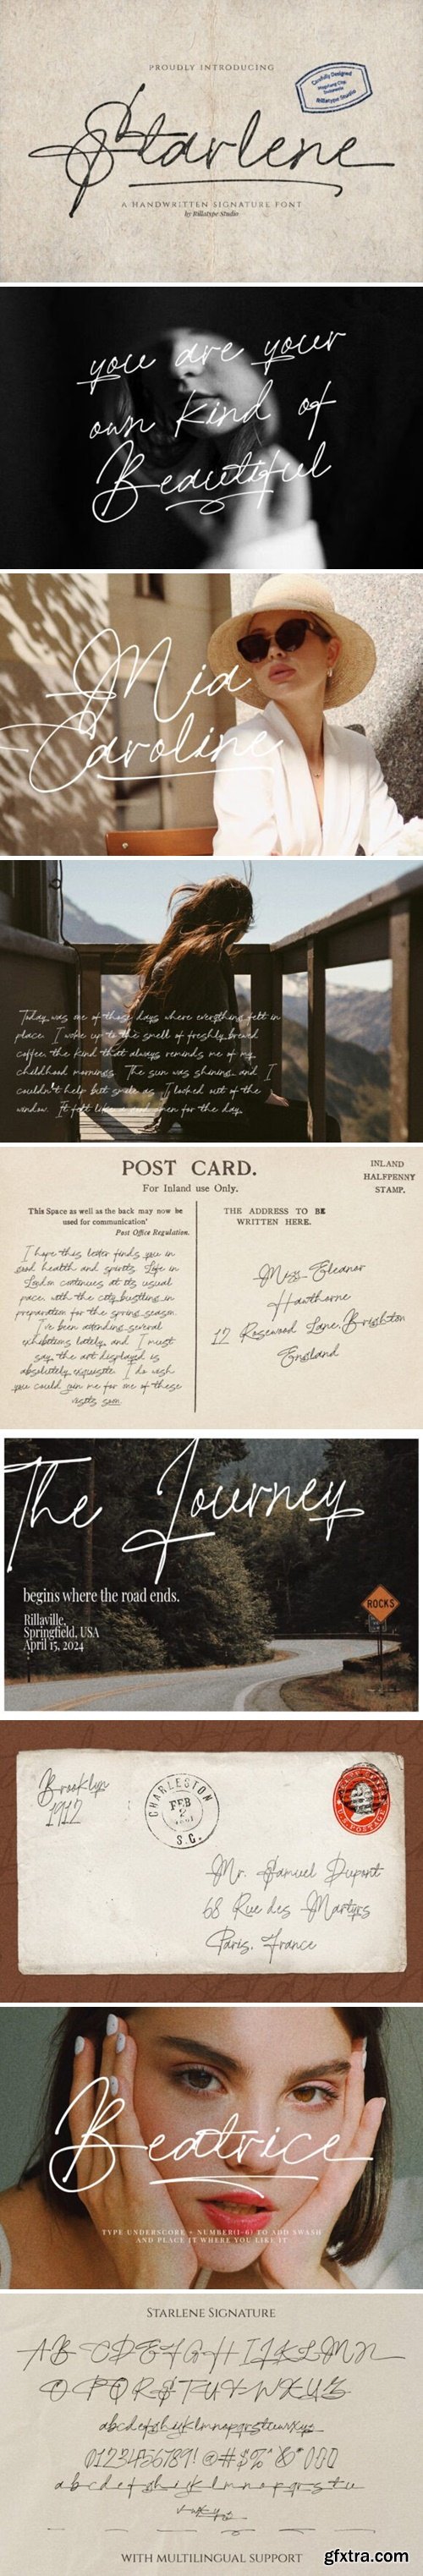 PROUDLY INTRODUCING
Carefully Designed
Rillatype Studio
Starlene
A HANDWRITTEN SIGNATURE FONT
by Rillatype Studio
you are your
own kind of
Beautiful
Mia
Caroline
Today was one of those days where everything felt in
place. I woke up to the smell of freshly brewed
coffee, the kind that always reminds me of my
childhood mornings. The sun was shining, and I
couldn't help but smile as I looked out of the
window. It felt like a good omen for the day.
POST CARD.
For Inland use Only.
INLAND
HALFPENNY
STAMP.
This Space as well as the back may now be
used for communication'
Post Office Regulation.
THE ADDRESS TO BE
WRITTEN HERE.
I hope this letter finds you in
good health and spirits. Life in
London continues at its usual
pace, with the city bustling in
preparation for the spring season.
I've been attending several
exhibitions lately, and I must
say, the art displayed is
absolutely exquisite. I do wish
you could join me for one of these
visits soon.
Miss Eleanor
Hawthorne
12 Rosewood Lane, Brighton
England
The Journey
begins where the road ends.
Rillaville,
Springfield, USA
April 15, 2024
ROCKS
Brooklyn
1912
CHARLESTON
FEB
2
S.C.
U.S. POSTAGE
Mr. Samuel Dupont
68 Rue des Martyrs
Paris, France
Beatrice
TYPE UNDERSCORE + NUMBER(1-6) TO ADD SWASH
AND PLACE IT WHERE YOU LIKE IT
STARLENE SIGNATURE
A B C D E F G H I J K L M N
O P Q R S T U V W X Y Z
abcdefghijklmnopqrstuvwxyz
0123456789! @#$%^&*()
a b c d e f g h i j k l m n o p q r s t u
v w x y z
WITH MULTILINGUAL SUPPORT
gfxtra.com